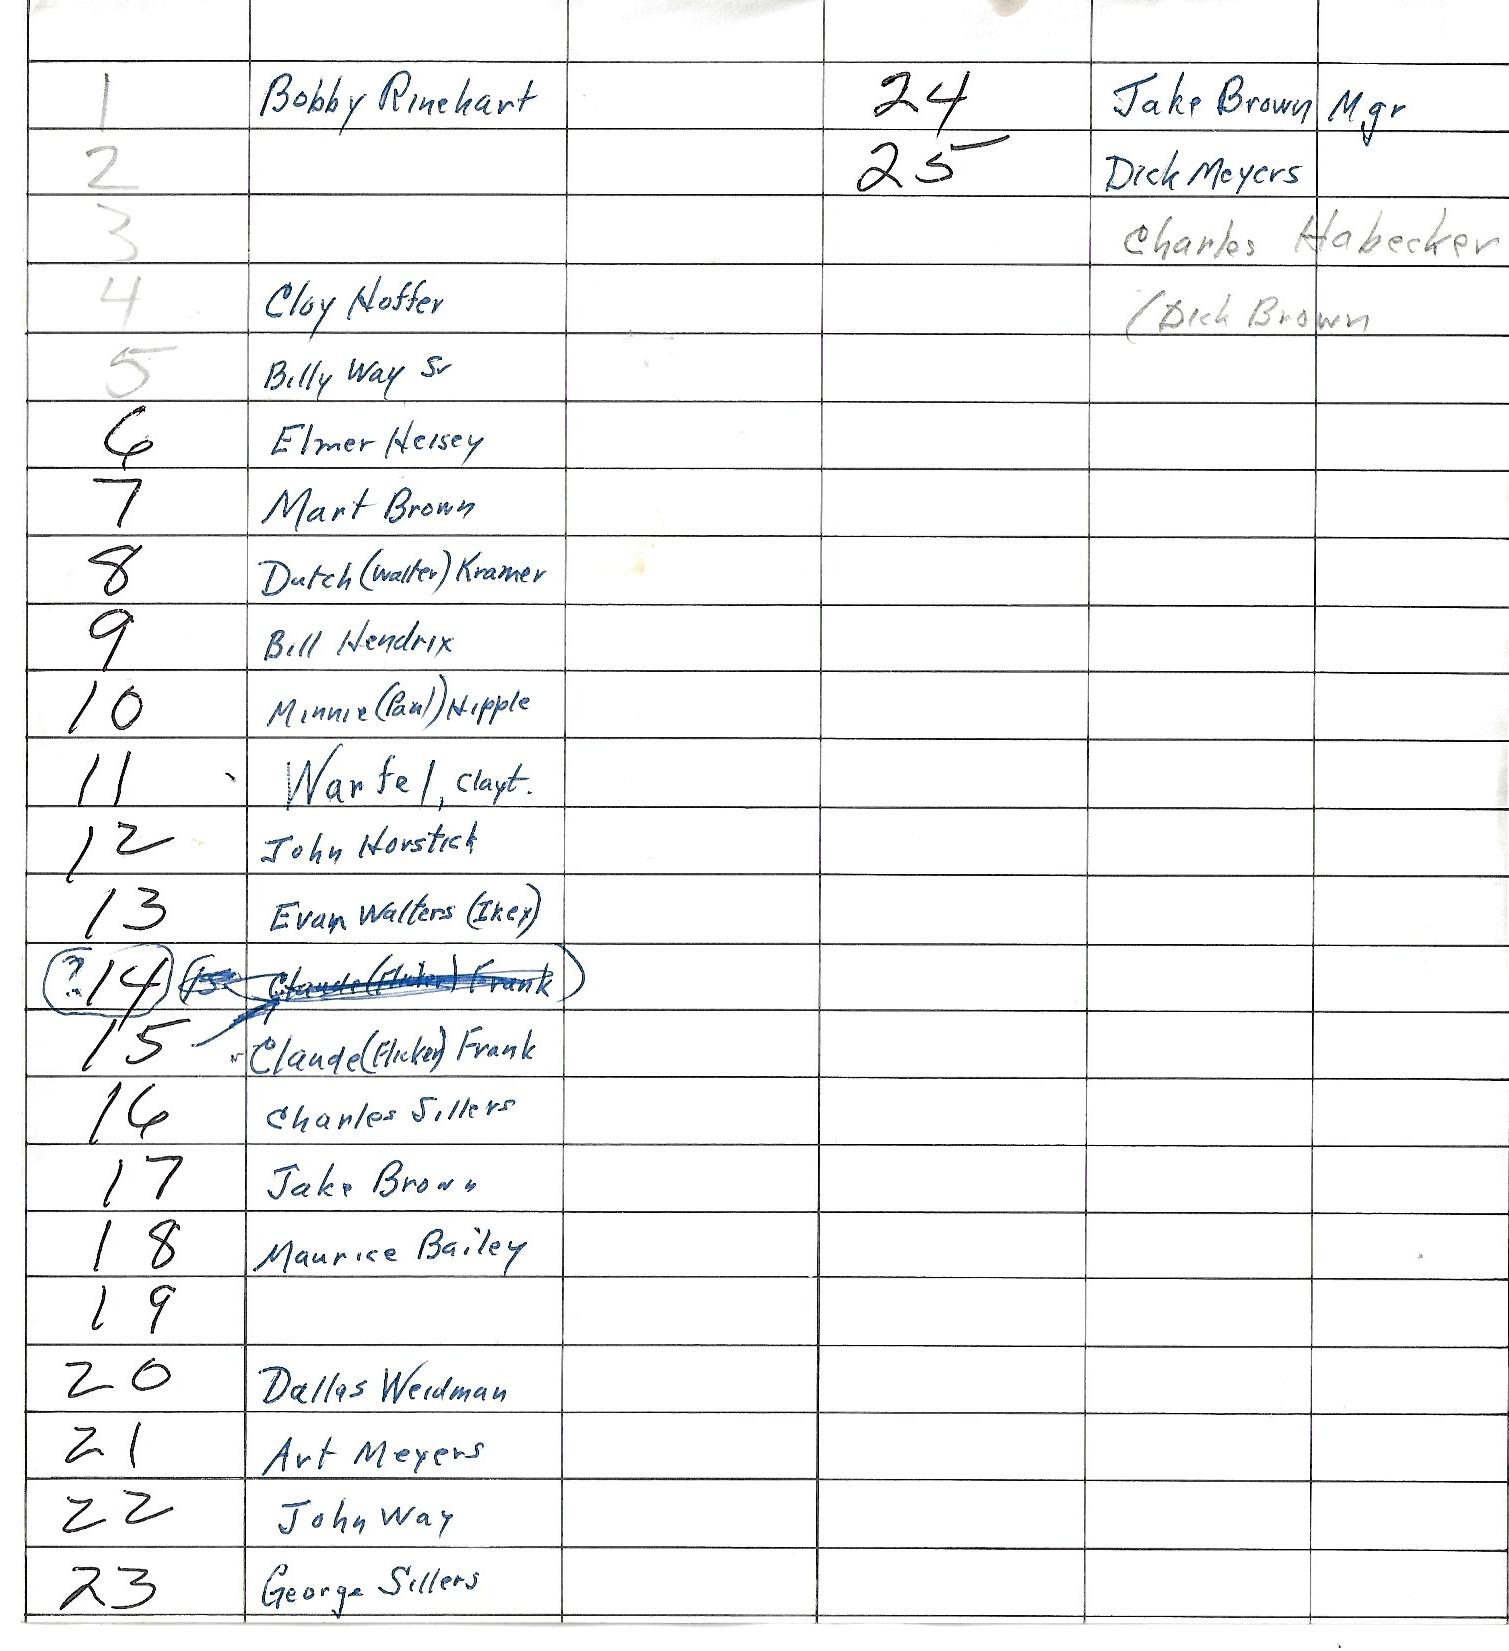 1 Bobby Rinehart 24 Jake Brown Mgr
2 25 Dick Meyers
3 Charles Habecker
4 Cloy Hoffer (Dick Brown
5 Billy Way Sr
6 Elmer Heisey
7 Mart Brown
8 Dutch (Walter) Kramer
9 Bill Hendrix
10 Minnie (Paul) Hipple
11 Warfel, Clayt.
12 John Horstick
13 Evan Walters (Ikey)
? 14 (15 Claude (Flicker) Frank)
15 Claude (Flicker) Frank
16 Charles Sillers
17 Jake Brown
18 Maurice Bailey
19
20 Dallas Weidman
21 Art Meyers
22 John Way
23 George Sillers